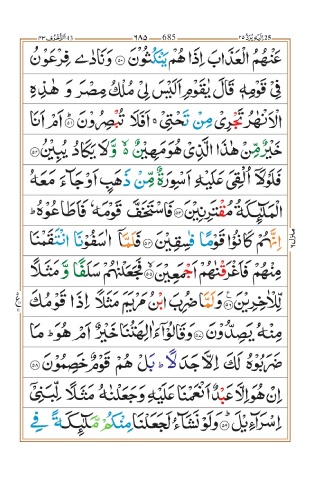 الزخرف ٤٣ ٦٨٥ 685 اليه يرد ٢٥
عَنْهُمُ الْعَذَابَ اِذَا هُمْ يَنْكُثُوْنَ ۝٥٠ وَ نَادٰى فِرْعَوْنُ
فِيْ قَوْمِهٖ قَالَ يٰقَوْمِ اَلَيْسَ لِيْ مُلْكُ مِصْرَ وَ هٰذِهِ
الْاَنْهٰرُ تَجْرِيْ مِنْ تَحْتِيْ ۚ اَفَلَا تُبْصِرُوْنَ ۝٥١ اَمْ اَنَا
خَيْرٌ مِّنْ هٰذَا الَّذِيْ هُوَ مَهِيْنٌ ۙ۬ وَّ لَا يَكَادُ يُبِيْنُ ۝٥٢
فَلَوْلَاۤ اُلْقِيَ عَلَيْهِ اَسْوِرَةٌ مِّنْ ذَهَبٍ اَوْ جَآءَ مَعَهُ
الْمَلٰٓىِٕكَةُ مُقْتَرِنِيْنَ ۝٥٣ فَاسْتَخَفَّ قَوْمَهٗ فَاَطَاعُوْهُ ؕ
اِنَّهُمْ كَانُوْا قَوْمًا فٰسِقِيْنَ ۝٥٤ فَلَمَّاۤ اٰسَفُوْنَا انْتَقَمْنَا
مِنْهُمْ فَاَغْرَقْنٰهُمْ اَجْمَعِيْنَ ۝٥٥ فَجَعَلْنٰهُمْ سَلَفًا وَّ مَثَلًا
لِّلْاٰخِرِيْنَ ۝٥٦ وَ لَمَّا ضُرِبَ ابْنُ مَرْيَمَ مَثَلًا اِذَا قَوْمُكَ
مِنْهُ يَصِدُّوْنَ ۝٥٧ وَ قَالُوْۤا ءَاٰلِهَتُنَا خَيْرٌ اَمْ هُوَ ؕ مَا
ضَرَبُوْهُ لَكَ اِلَّا جَدَلًا ؕ بَلْ هُمْ قَوْمٌ خَصِمُوْنَ ۝٥٨
اِنْ هُوَ اِلَّا عَبْدٌ اَنْعَمْنَا عَلَيْهِ وَ جَعَلْنٰهُ مَثَلًا لِّبَنِيْۤ
اِسْرَآءِيْلَ ؕ۝٥٩ وَ لَوْ نَشَآءُ لَجَعَلْنَا مِنْكُمْ مَّلٰٓىِٕكَةً فِي